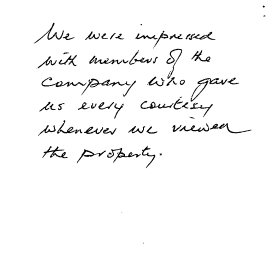 We were impressed
with members of the
company who gave
us every courtesy
whenever we viewed
the property.